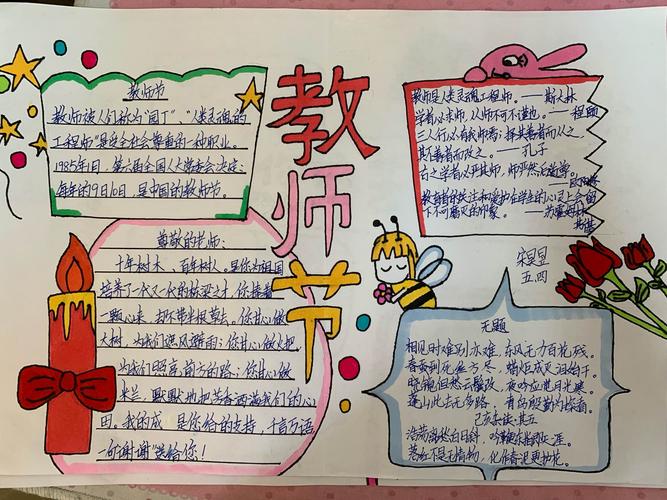 教师节
教师节
教师被人们称为“园丁”、“人类灵魂的
工程师”是受全社会尊重的一种职业。
1985年1月，第六届全国人大常委会决定：
每年的9月10日，是中国的教师节。
尊敬的老师：
十年树木，百年树人，是你为祖国
培养了一代又一代的栋梁之才，你捧着
一颗心来，却不带半根草去。你甘心做
大树，为我们遮风避雨；你甘心做火把，
为我们照亮前方的路；你甘心做
米兰，默默地把芳香洒满我们的心
田。我的成 是您给的支持，千言万语
一句“谢谢”送给您！
教师是人类灵魂工程师。——斯大林
学者必求师，从师不可不谨也。——程颐
三人行必有我师焉；择其善者而从之，
其不善者而改之。——孔子
古之学者必严其师，师严然后道尊。
——欧阳修
教育者的关注和爱护在学生的心灵上会留
下不可磨灭的印象。——苏霍姆林
斯基
宋昱昱
五四
无题
相见时难别亦难，东风无力百花残。
春蚕到死丝方尽，蜡炬成灰泪始干。
晓镜但愁云鬓改，夜吟应觉月光寒。
蓬山此去无多路，青鸟殷勤为探看。
己亥杂诗·其五
浩荡离愁白日斜，吟鞭东指即天涯。
落红不是无情物，化作春泥更护花。